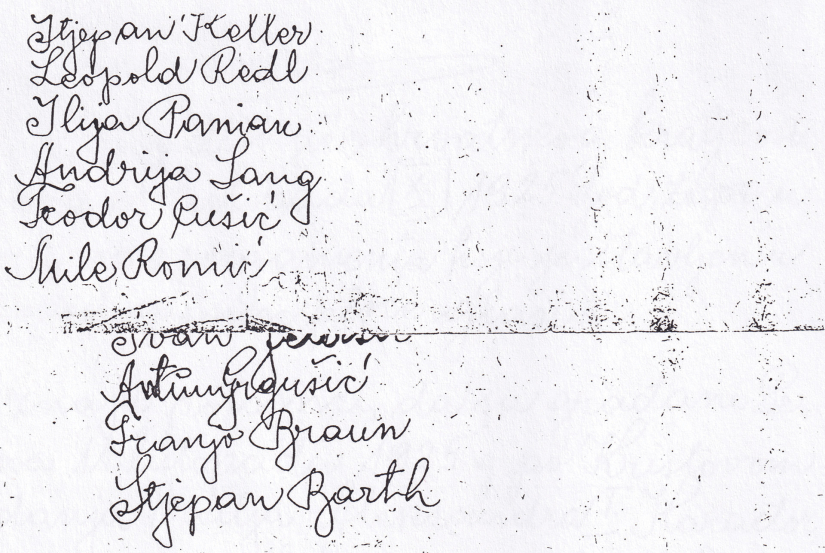 Stjepan Keller
Leopold Redl
Ilija Panian
Andrija Lang
Teodor Cušić
Mile Romić
Ivan
Antun Grgušić
Franjo Braun
Stjepan Barth